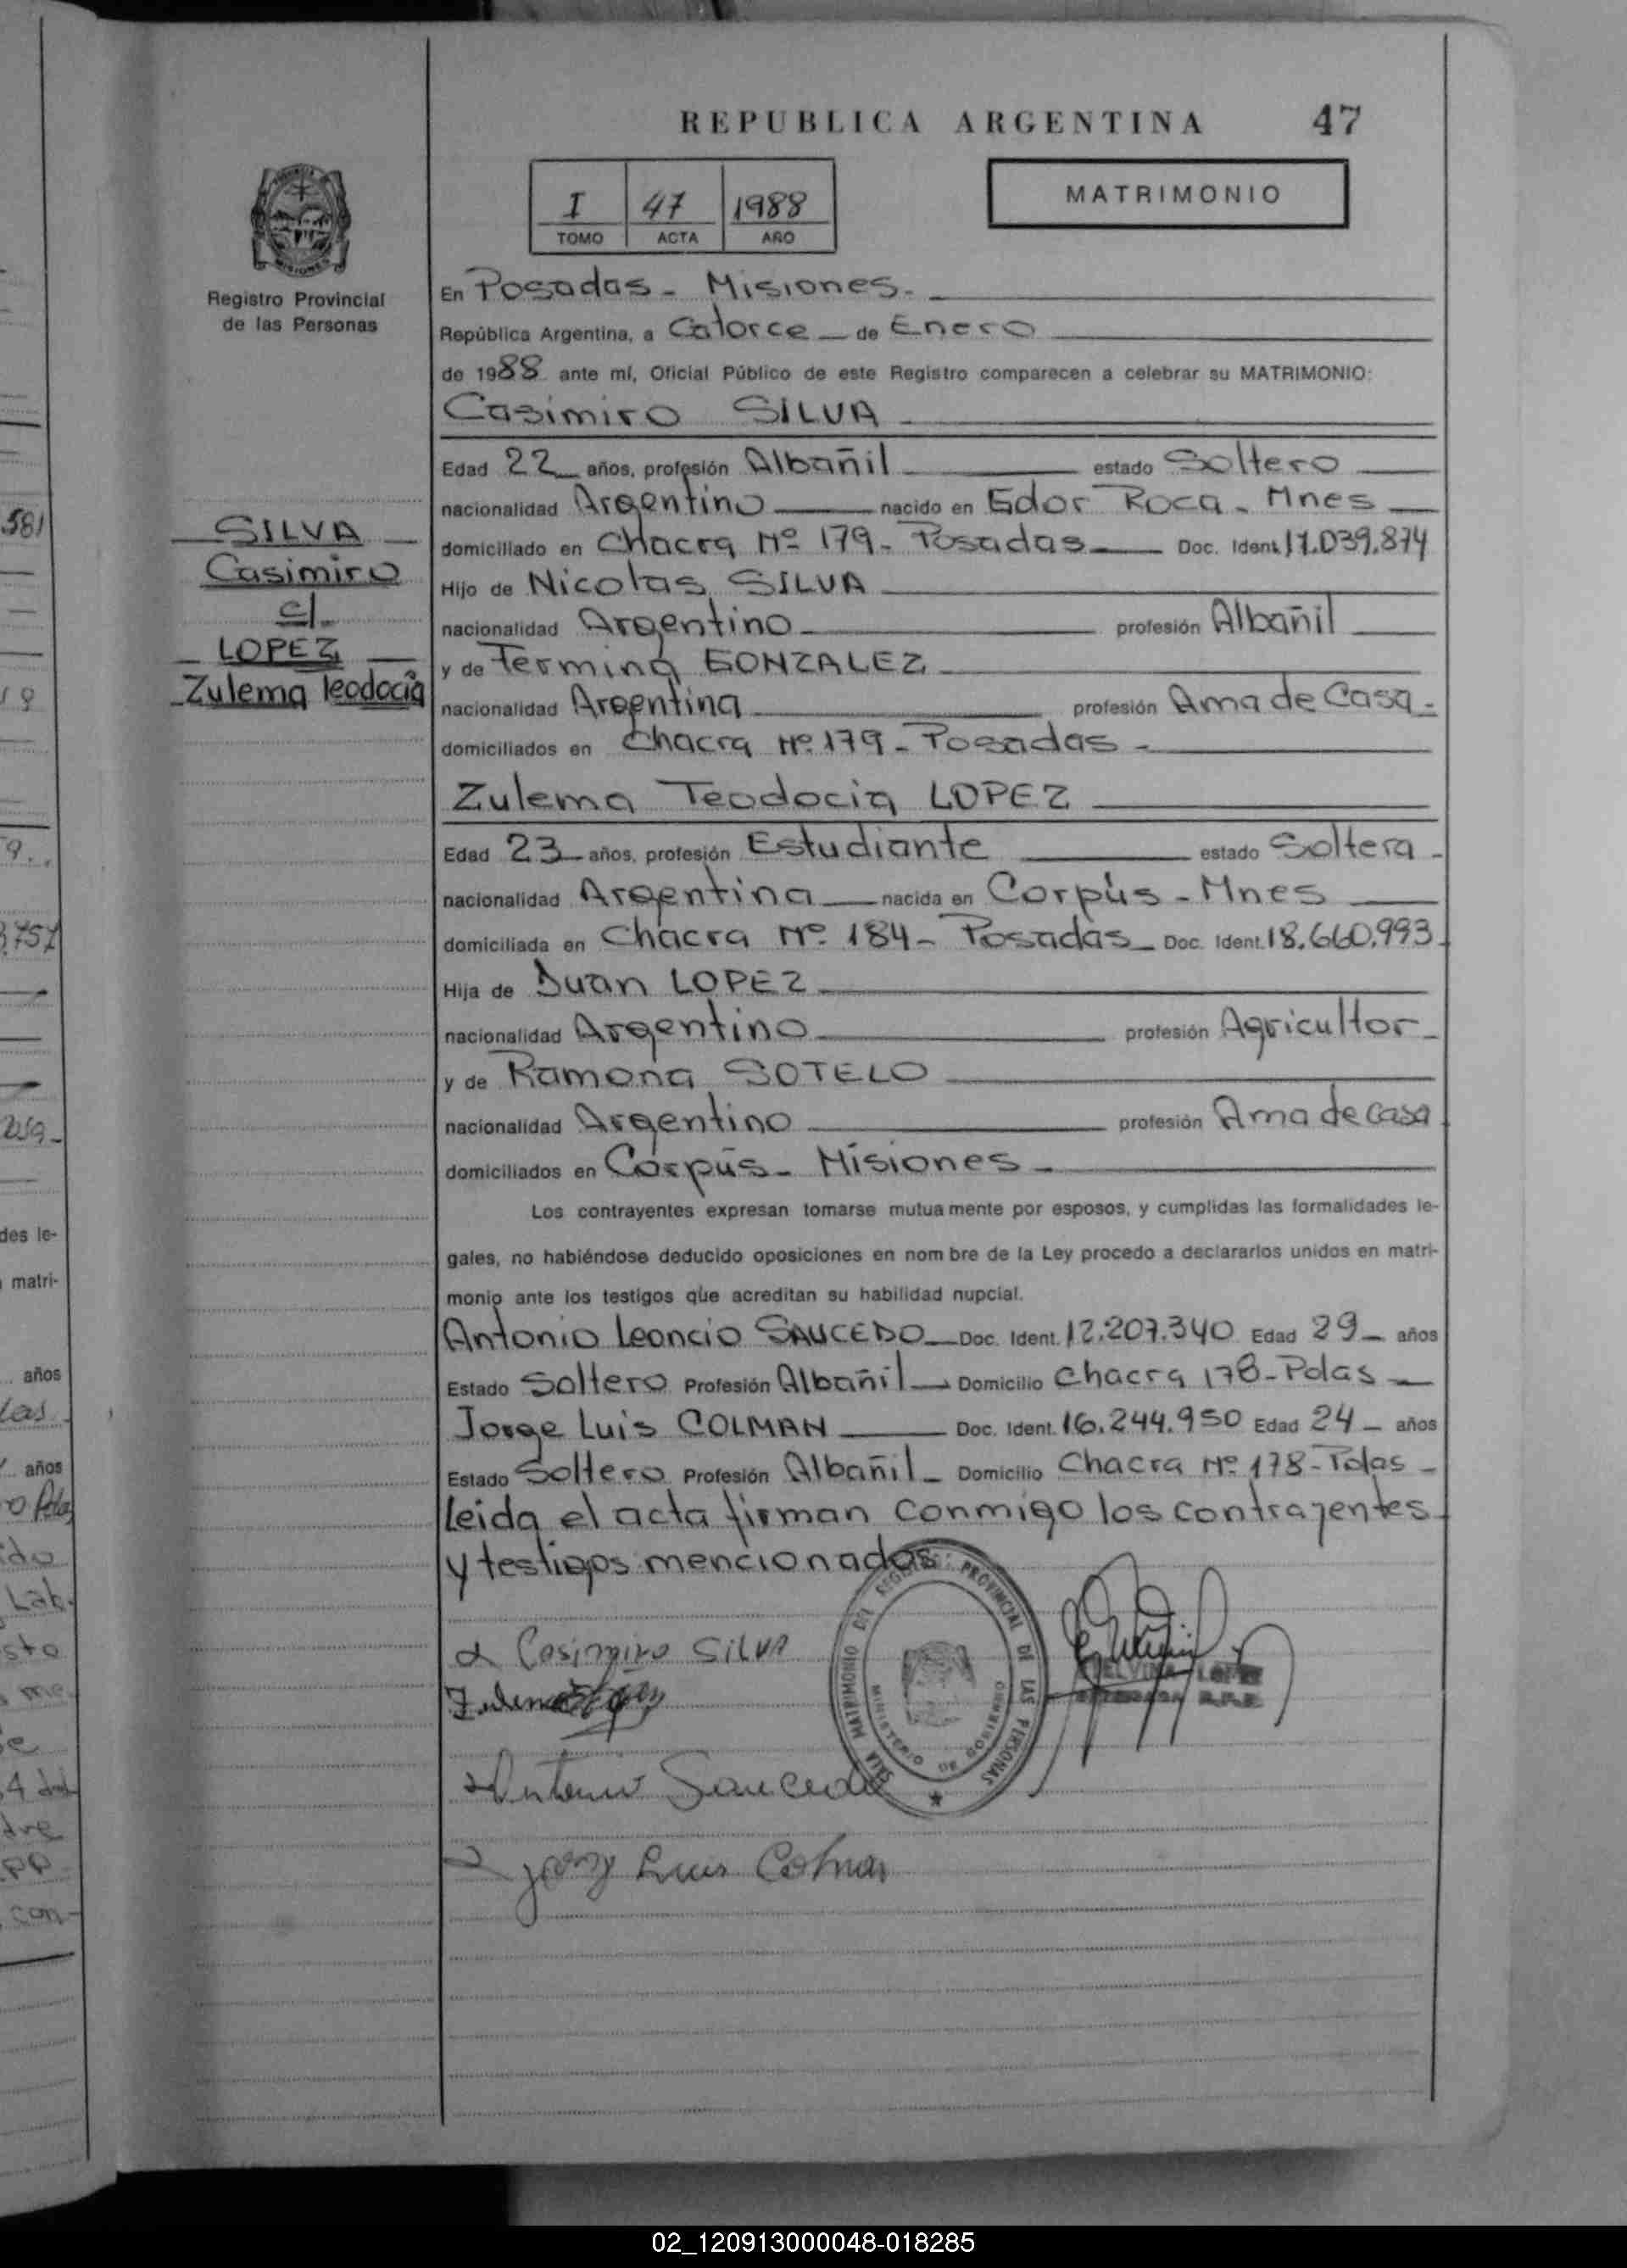 REPUBLICA ARGENTINA 47
I 47 1988
TOMO ACTA AÑO
MATRIMONIO
Registro Provincial
de las Personas
SILVA
Casimiro
c/.
LOPEZ
Zulema Teodocia
En Posadas - Misiones.
República Argentina, a Catorce de Enero
de 1988 ante mí, Oficial Público de este Registro comparecen a celebrar su MATRIMONIO:
Casimiro SILVA
Edad 22 años, profesión Albañil estado Soltero
nacionalidad Argentino nacido en Gdor Roca - Mnes
domiciliado en Chacra Nº 179 - Posadas Doc. Ident. 17.039.874
Hijo de Nicolas SILVA
nacionalidad Argentino profesión Albañil
y de Termina GONZALEZ
nacionalidad Argentina profesión Ama de Casa -
domiciliados en Chacra Nº 179 - Posadas -
Zulema Teodocia LOPEZ
Edad 23 años, profesión Estudiante estado Soltera -
nacionalidad Argentina nacida en Corpús - Mnes
domiciliada en Chacra Nº 184 - Posadas Doc. Ident. 18.660.993
Hija de Juan LOPEZ
nacionalidad Argentino profesión Agricultor
y de Ramona SOTELO
nacionalidad Argentino profesión Ama de casa
domiciliados en Corpús - Misiones -
Los contrayentes expresan tomarse mutuamente por esposos, y cumplidas las formalidades le-
gales, no habiéndose deducido oposiciones en nom bre de la Ley procedo a declararlos unidos en matri-
monio ante los testigos que acreditan su habilidad nupcial.
Antonio Leoncio SAUCEDO Doc. Ident. 12.207.340 Edad 29 años
Estado Soltero Profesión Albañil Domicilio Chacra 178 - Pdas
Jorge Luis COLMAN Doc. Ident. 16.244.950 Edad 24 años
Estado Soltero Profesión Albañil Domicilio Chacra Nº 178 - Pdas -
Leida el acta firman conmigo los contrayentes
y testigos mencionados
Casimiro SILVA
Antonio Saucedo
Luis Colman
REGISTRO PROVINCIAL DE LAS PERSONAS
MINISTERIO DE GOBIERNO
02_120913000048-018285